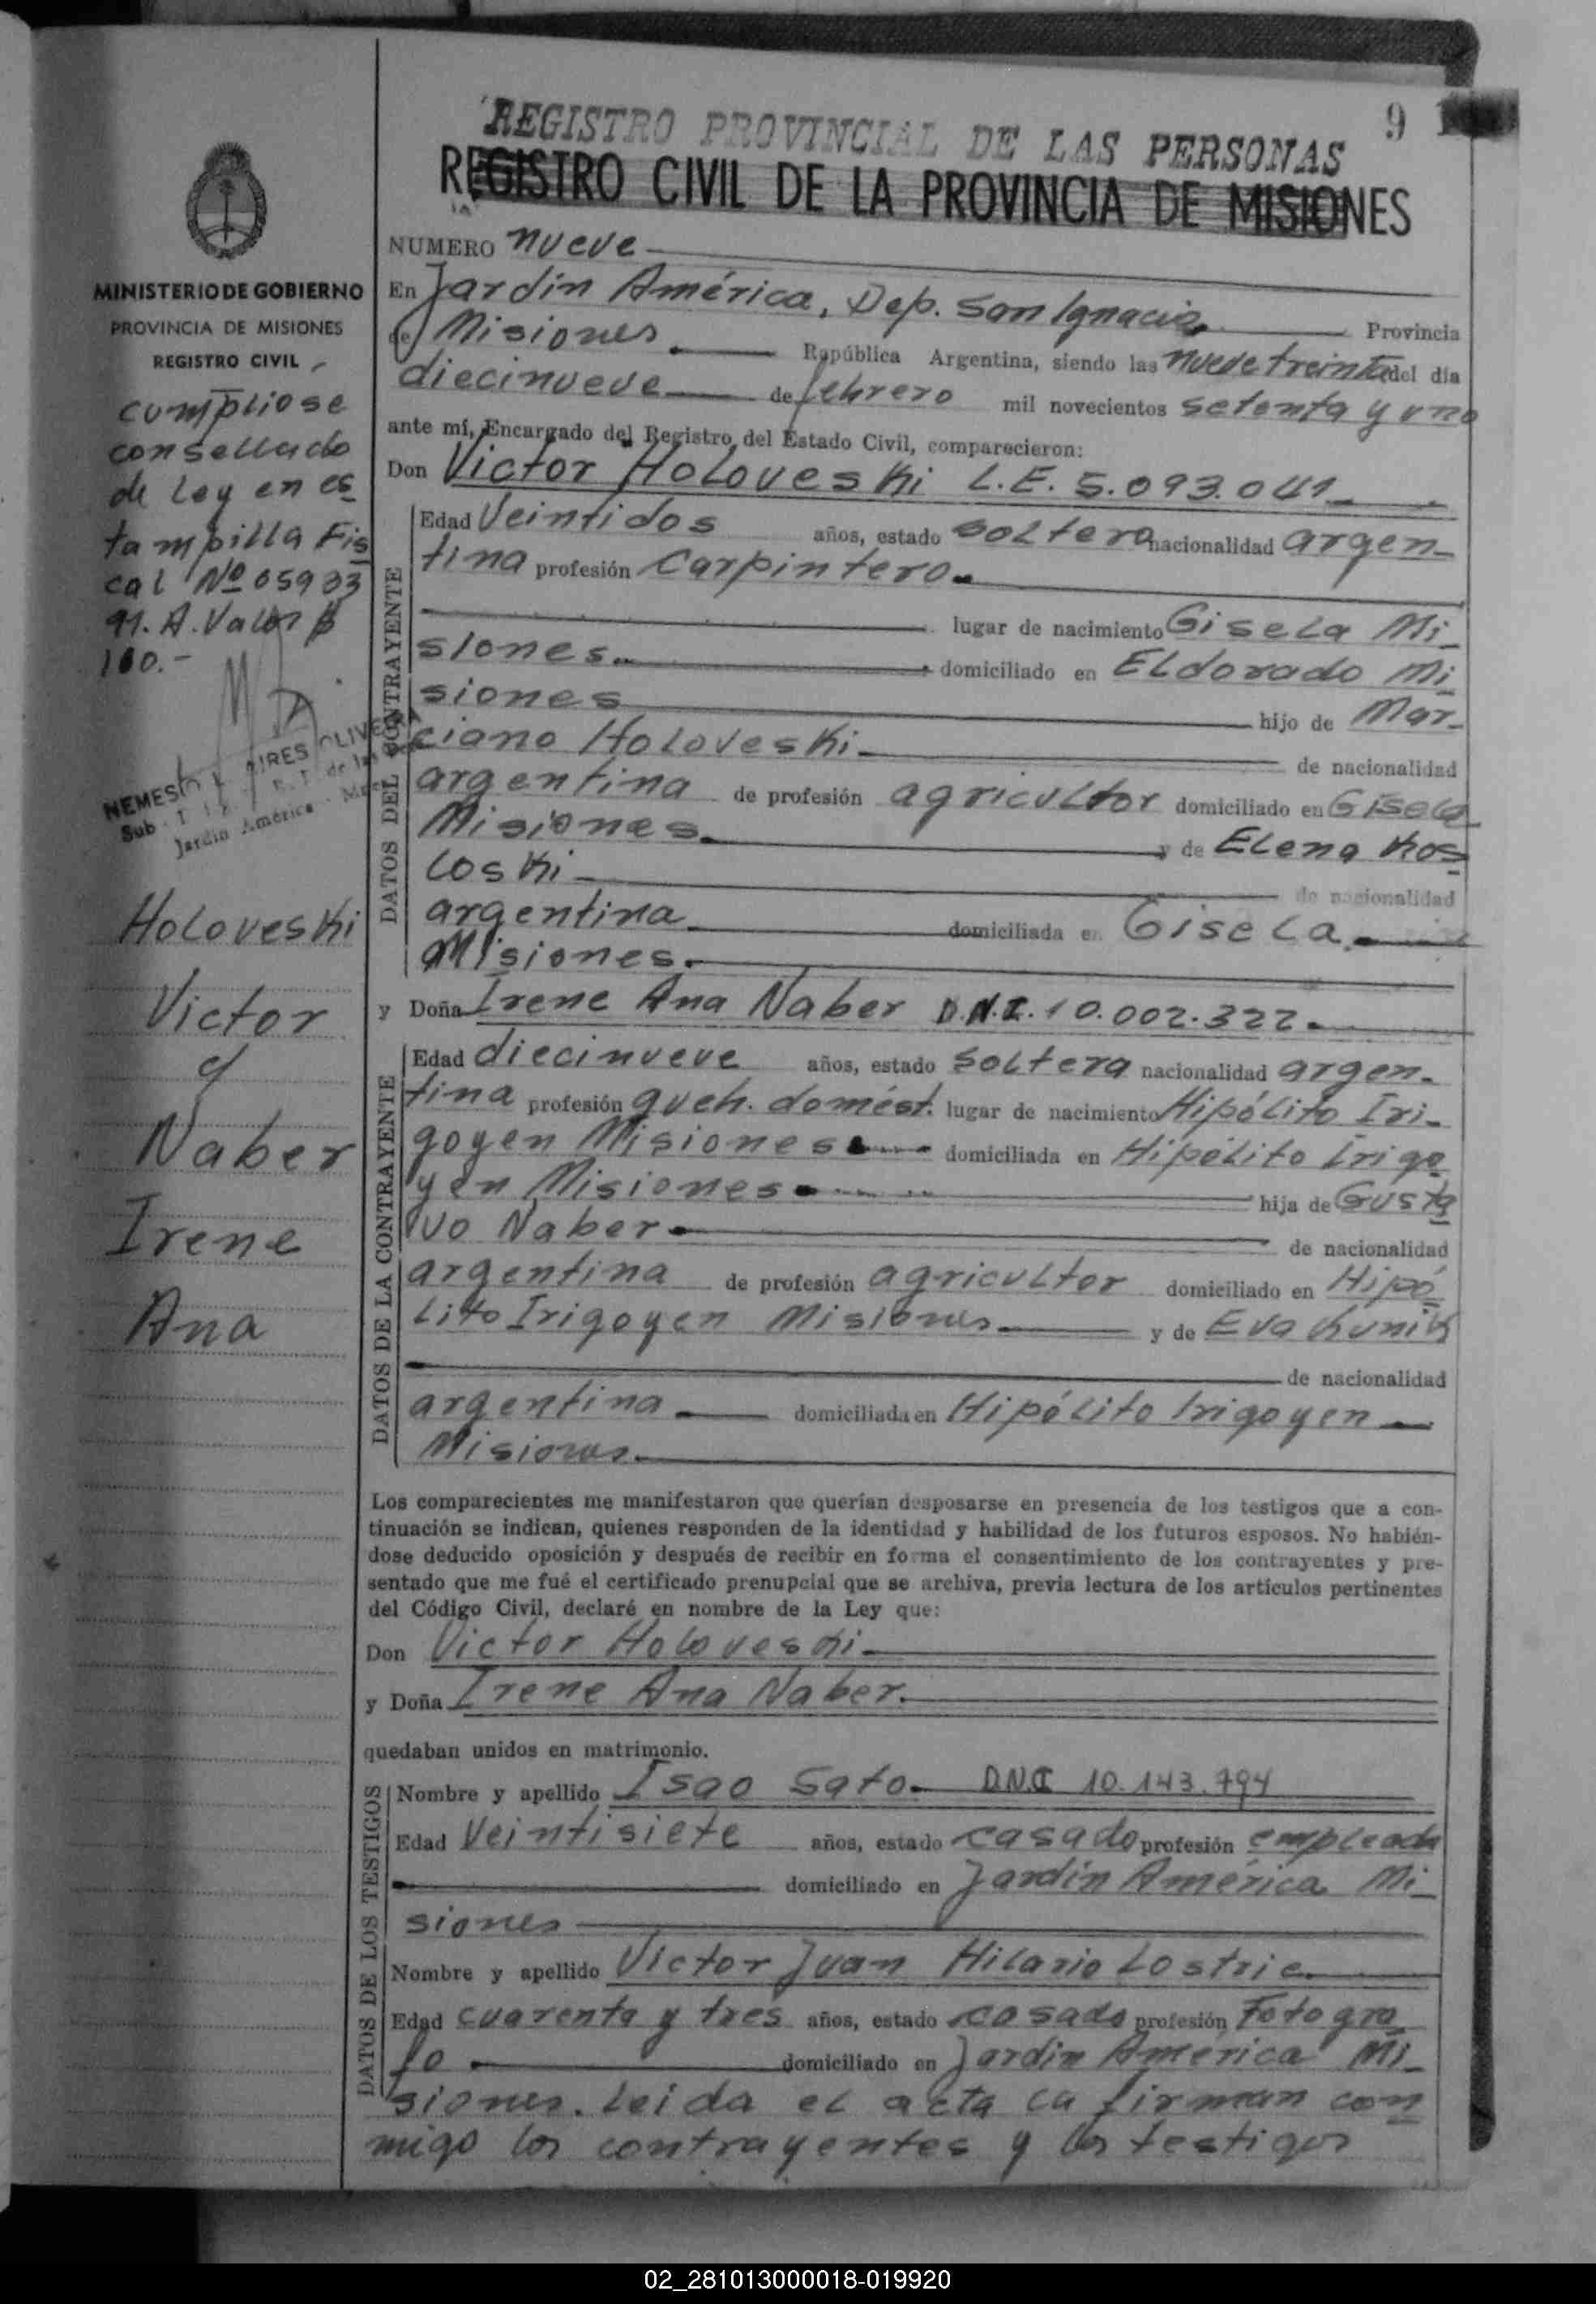 REGISTRO PROVINCIAL DE LAS PERSONAS
9
REGISTRO CIVIL DE LA PROVINCIA DE MISIONES
MINISTERIO DE GOBIERNO
PROVINCIA DE MISIONES
REGISTRO CIVIL
cumpliose
con sellado
de Ley en es
tampilla Fis
cal Nº 05933
91. A. Valor $
100.-
NEMESIO
Sub
Jardín América
Holoveski
Victor
y
Naber
Irene
Ana
NUMERO nueve
En Jardín América, Dep. San Ignacio Provincia
de Misiones República Argentina, siendo las nueve treinta del día
diecinueve de febrero mil novecientos setenta y uno
ante mí, Encargado del Registro del Estado Civil, comparecieron:
Don Victor Holoveski L.E. 5.093.041
DATOS DEL CONTRAYENTE
Edad Veintidos años, estado soltero nacionalidad argen-
tina profesión Carpintero.
lugar de nacimiento Gisela Mi-
siones. domiciliado en Eldorado Mi
siones hijo de Mar-
ciano Holoveski de nacionalidad
argentina de profesión agricultor domiciliado en Gisela
Misiones. y de Elena Kos
loski de nacionalidad
argentina domiciliada en Gisela.
Misiones.
y Doña Irene Ana Naber D.N.I. 10.002.322.
DATOS DE LA CONTRAYENTE
Edad diecinueve años, estado soltera nacionalidad argen-
tina profesión queh. domést. lugar de nacimiento Hipólito Iri-
goyen Misiones domiciliada en Hipólito Irigo
yen Misiones hija de Gusta
vo Naber de nacionalidad
argentina de profesión agricultor domiciliado en Hipó
lito Irigoyen Misiones. y de Eva Kunik
de nacionalidad
argentina. domiciliada en Hipólito Irigoyen
Misiones.
Los comparecientes me manifestaron que querían desposarse en presencia de los testigos que a con-
tinuación se indican, quienes responden de la identidad y habilidad de los futuros esposos. No habién-
dose deducido oposición y después de recibir en forma el consentimiento de los contrayentes y pre-
sentado que me fué el certificado prenupcial que se archiva, previa lectura de los artículos pertinentes
del Código Civil, declaré en nombre de la Ley que:
Don Victor Holoveski
y Doña Irene Ana Naber.
quedaban unidos en matrimonio.
DATOS DE LOS TESTIGOS
Nombre y apellido Isao Sato. D.N.I 10.143.794
Edad Veintisiete años, estado casado profesión empleado
domiciliado en Jardín América Mi-
siones
Nombre y apellido Victor Juan Hilario Lostrie.
Edad cuarenta y tres años, estado casado profesión Fotogra
fo domiciliado en Jardín América Mi-
siones. Leida el acta la firman con
migo los contrayentes y los testigos
02_281013000018-019920